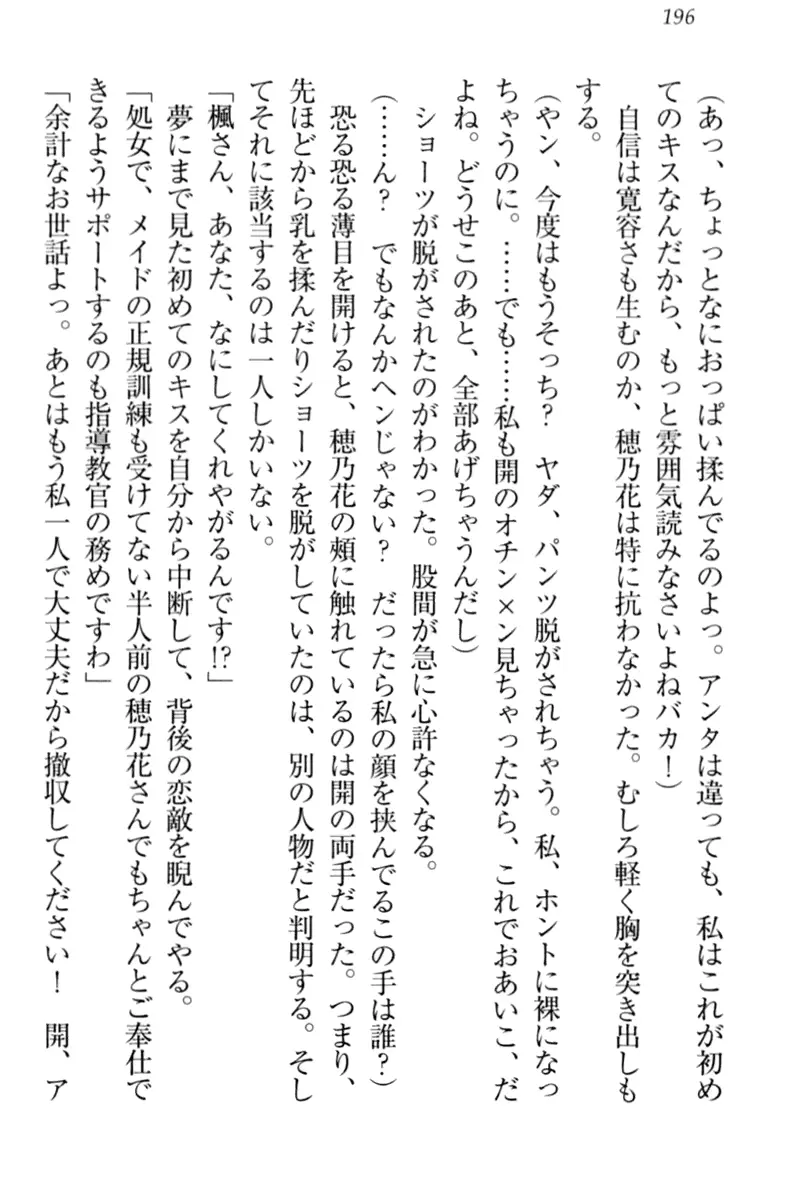 196
(あっ、ちょっとなにおっぱい揉んでるのよっ。アンタは違っても、私はこれが初め
てのキスなんだから、もっと雰囲気読みなさいよねバカ！)
　自信は寛容さも生むのか、穂乃花は特に抗わなかった。むしろ軽く胸を突き出しも
する。
(ヤン、今度はもうそっち？　ヤダ、パンツ脱がされちゃう。私、ホントに裸になっ
ちゃうのに。……でも……私も開のオチン×ン見ちゃったから、これでおあいこ、だ
よね。どうせこのあと、全部あげちゃうんだし)
　ショーツが脱がされたのがわかった。股間が急に心許なくなる。
(……ん？　でもなんかヘンじゃない？　だったら私の顔を挟んでるこの手は誰？)
　恐る恐る薄目を開けると、穂乃花の頰に触れているのは開の両手だった。つまり、
先ほどから乳を揉んだりショーツを脱がしていたのは、別の人物だと判明する。そし
てそれに該当するのは一人しかいない。
「楓さん、あなた、なにしてくれやがるんです!?」
　夢にまで見た初めてのキスを自分から中断して、背後の恋敵を睨んでやる。
「処女で、メイドの正規訓練も受けてない半人前の穂乃花さんでもちゃんとご奉仕で
きるようサポートするのも指導教官の務めですわ」
「余計なお世話よっ。あとはもう私一人で大丈夫だから撤収してください！　開、ア